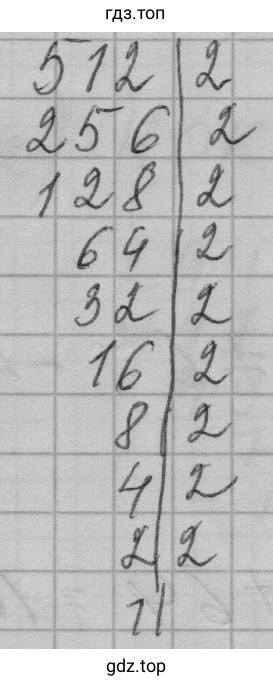 гдз.топ
512 | 2
256 | 2
128 | 2
64 | 2
32 | 2
16 | 2
8 | 2
4 | 2
2 | 2
1 |
gdz.top